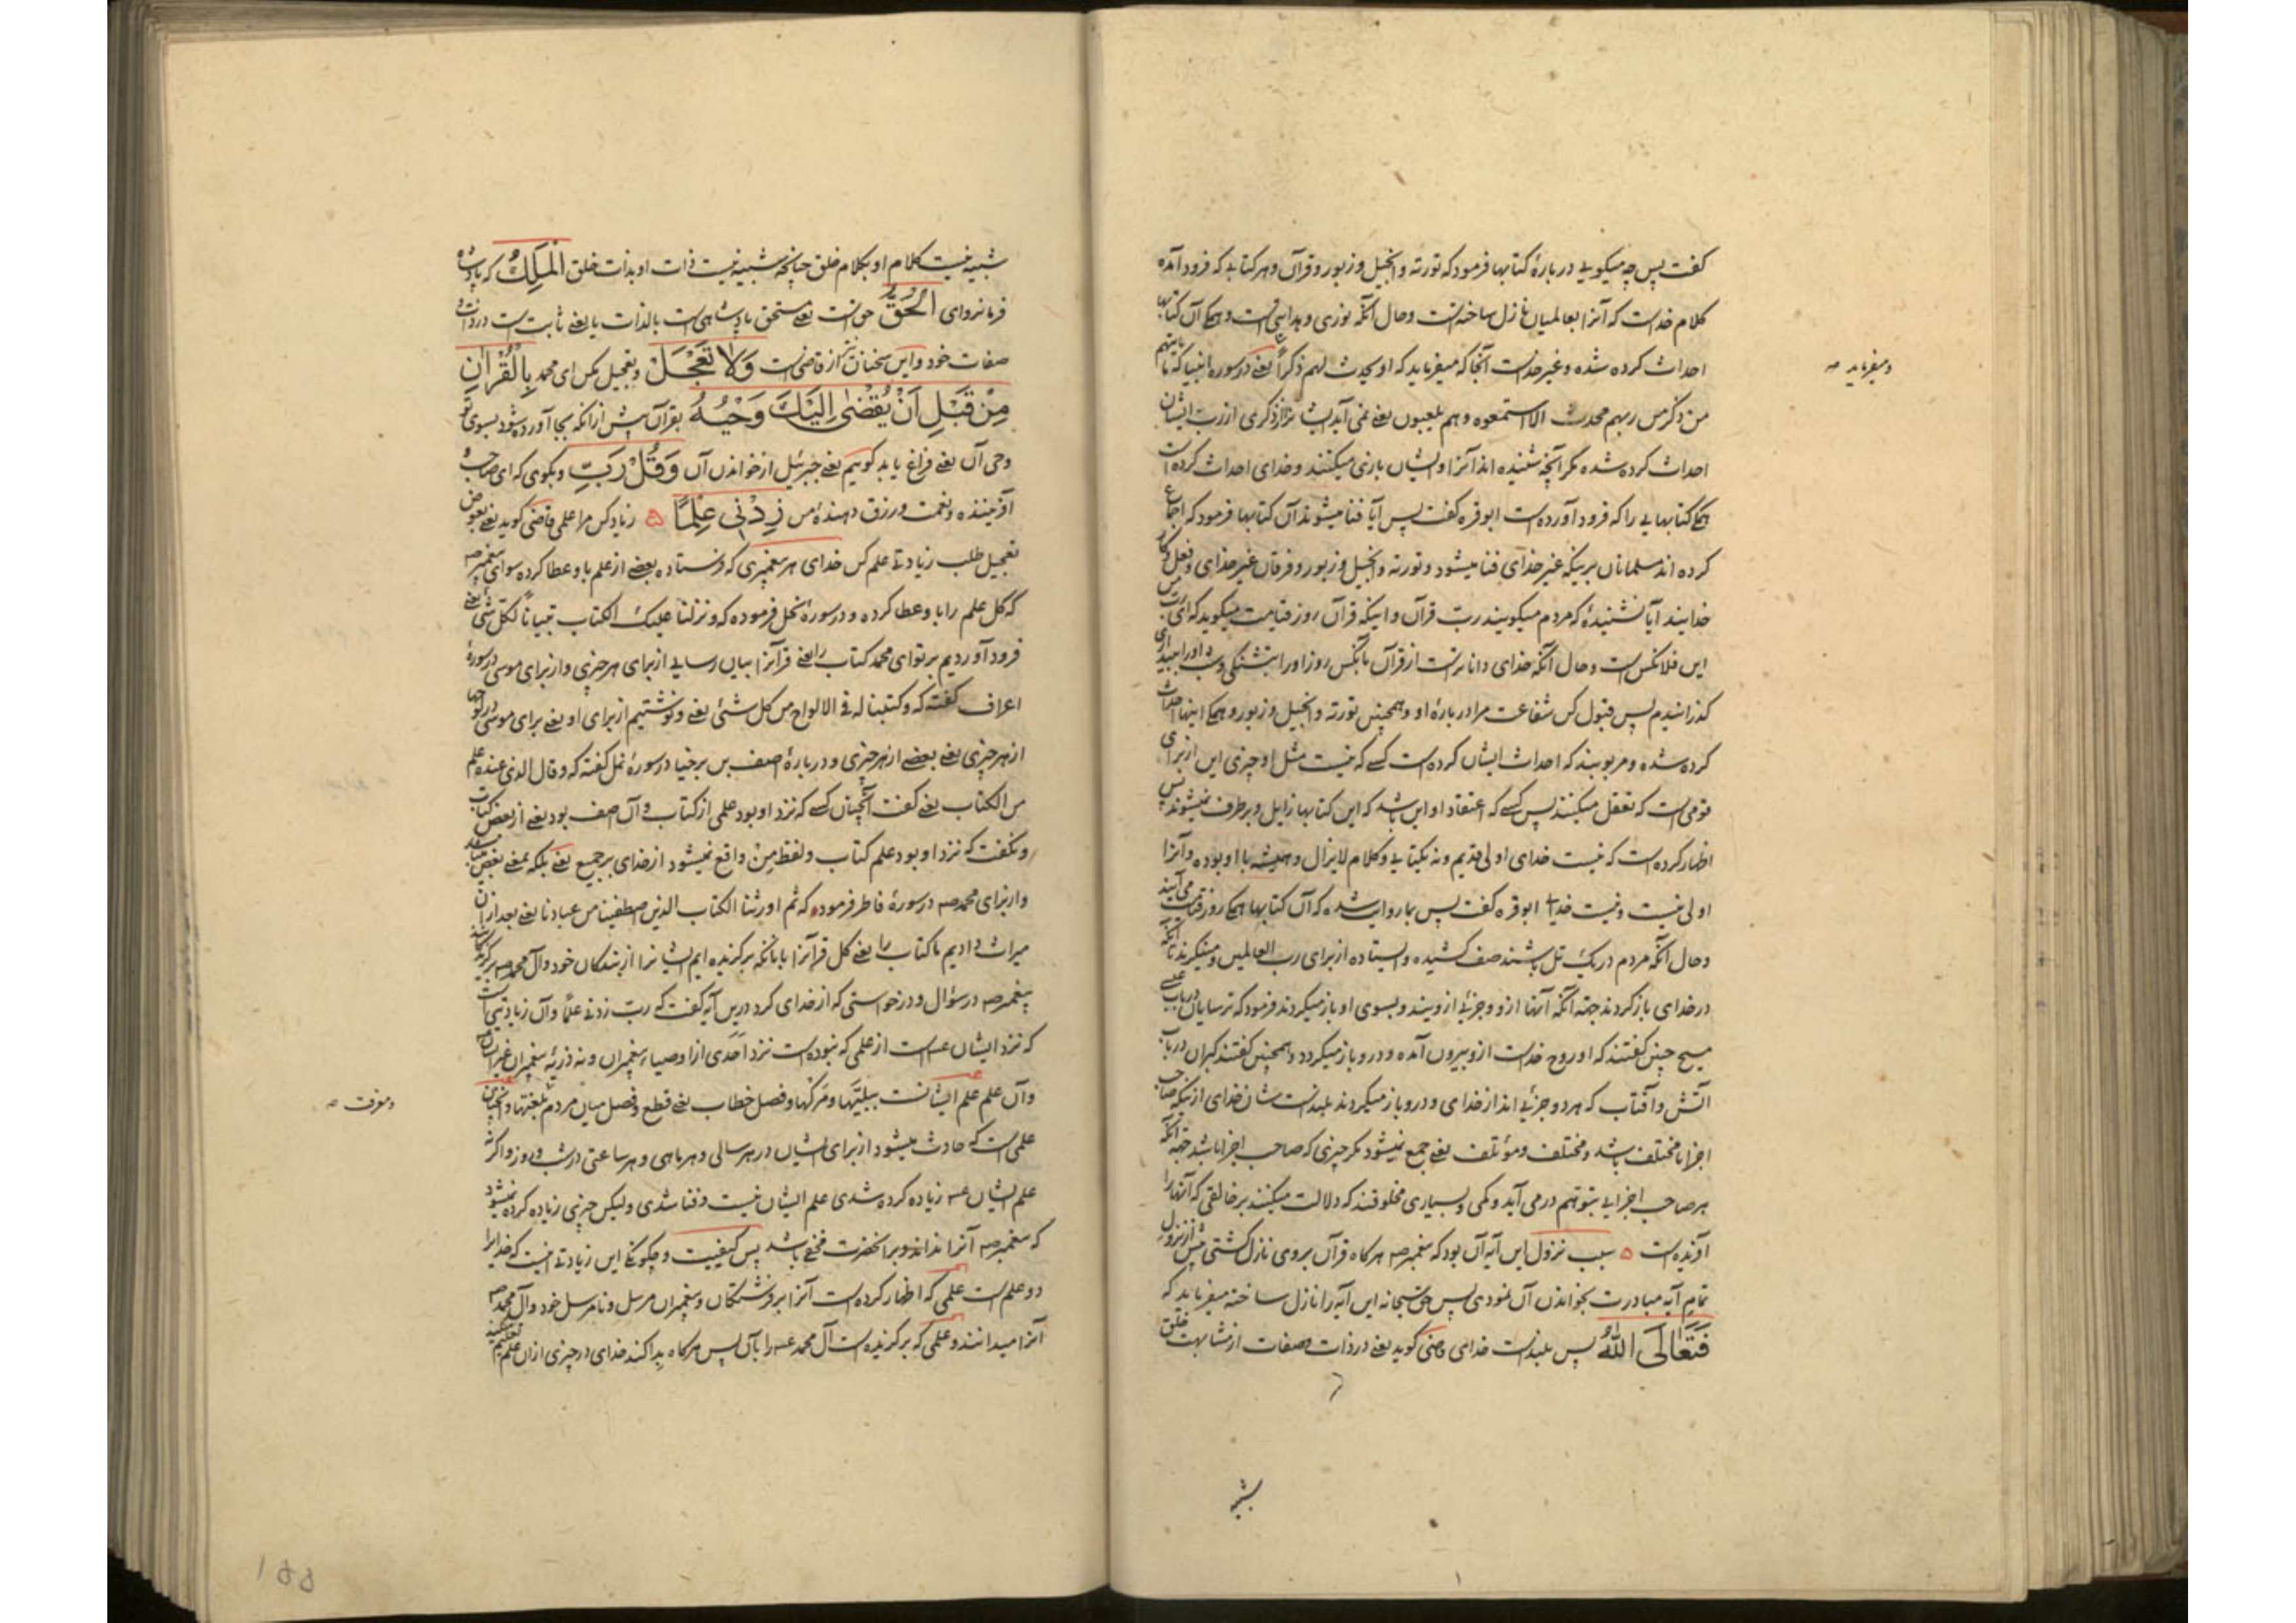 گفت پس چه میگویی در بارهٔ کتابها فرمود که توریة و انجیل و زبور و قرآن و هر کتابی که فرود آمده
کلام خداست که آنرا بعالمیان نازل ساخته است و حال آنکه نوری و هدایتی است و همگی آن کتابها
احداث کرده شده و غیر خداست آنجا که میفرماید که او یحدث لهم ذکراً یعنی در سوره انبیا که ما یاتیهم
ومیفرماید صه
من ذکر من ربهم محدث الا استمعوه و هم یلعبون یعنی نمی آید ایشانرا از ذکری از رب ایشان
احداث کرده شده مکر آنچه شنیده اند آنرا و ایشان بازی میکنند و خدای احداث کرده است
همکی کتابهایی را که فرود آورده است ابو قره گفت پس آیا فنا میشوند آن کتابها فرمود که اجماع
کرده اند مسلمانان بر اینکه غیر خدای فنا میشود و توریة و انجیل و زبور و فرقان غیر خدای و فعل و کار
خدایند آیا نشنیدهٔ که مردم میگویند رب قرآن و اینکه قرآن روز قیامت میگوید که ای رب من
این فلانکس است و حال آنکه خدای داناتر است از قرآن بآنکس روز او را بتشنکی و شب او را به بیداری
گذرانیدم پس قبول کن شفاعت مرا در بارهٔ او و همچنین توریة و انجیل و زبور و همکی اینها احداث
کرده شده و مربوبند که احداث ایشان کرده است کسی که نیست مثل او چیزی این از برای
قومی است که تعقل میکنند پس کسی که اعتقاد او این باشد که این کتابها زایل و برطرف نمیشوند پس
اظهار کرده است که نیست خدای اولی قدیم و نه یکتایی و کلام لایزال و همیشه با او بوده و آنرا
اولی نیست و نیست خدا ابو قره گفت پس بما روایت شده که آن کتابها همکی روز قیامت می آیند
و حال آنکه مردم در یک تل باشند صف کشیده و ایستاده از برای رب العالمین و مینکرند تا آنکه
در خدای باز کردند جهة آنکه آنها ازو و جزئی ازویند و بسوی او باز میکردند فرمود که ترسایان در باب
مسیح چنین گفتند که او روح خداست ازو بیرون آمده و درو باز میکردد و همچنین گفتند کبران در باب
آتش و آفتاب که هر دو جزئی اند از خدای و درو باز میکردند بلند است شان خدای از اینکه صاحب
اجزا یا مختلف باشد و مختلف و مؤتلف یعنی جمع نمیشود مکر چیزی که صاحب اجزا باشد جهة آنکه
هر صاحب اجزایی بتوهم در می آید و کمی و بسیاری مخلوقند که دلالت میکنند بر خالقی که آنها را
آرنده است ۵ سبب نزول این آیه آن بود که پیغمبر صه هر کاه قرآن بروی نازل گشتی پیش از نزول
تمام آیه مبادرت بخواندن آن نمودی پس حق سبحانه این آیه را نازل ساخته میفرماید که
فَتَعَالَى اللّٰهُ پس بلند است خدای قاضی گوید یعنی در ذات و صفات از مشابهت خلق
شبیه
شبیه نیست کلام او بکلام خلق چنانچه شبیه نیست ذات او بذات خلق الْمَلِكُ که پادشاه
فرمانروای الْحَقُّ حق است یعنی مستحق پادشاهی است بالذات یا یعنی ثابت است در ذات و
صفات خود و این سخنان نیز از قاضی است وَلَا تَعْجَلْ و تعجیل مکن ای محمد بِالْقُرْاٰنِ
مِنْ قَبْلِ اَنْ يُقْضٰى اِلَيْكَ وَحْيُهُ بقرآن پیش ازانکه بجا آورده شود بسوی تو
وحی آن یعنی فراغ یابد کوییم یعنی جبرئیل از خواندن آن وَقُلْ رَبِّ و بکوی که ای صاحب و
آفریننده و نعمت و رزق دهندهٔ من زِدْنِي عِلْمًا ۵ زیاد کن مرا علمی قاضی کوید یعنی بعوض
تعجیل طلب زیادتی علم کن خدای هر پیغمبری که فرستاده بعضی از علم باو عطا کرده سوای پیغمبر صه
که کل علم را باو عطا کرده و در سورهٔ نحل فرموده که و نزلنا علیک الکتاب تبیانا لکل شئ یعنی
فرود آوردیم بر تو ای محمد کتاب را یعنی قرآنرا بیان رسایی از برای هر چیزی و از برای موسی در سورهٔ
اعراف گفته که و کتبنا له فی الالواح من کل شئ یعنی و نوشتیم از برای او یعنی برای موسی در لوحها
از هر چیزی یعنی بعضی از هر چیزی و در بارهٔ آصف بن برخیا در سورهٔ نمل گفته که و قال الذی عنده علم
من الکتاب یعنی گفت آنچنان کسی که نزد او بود علمی از کتاب و آن آصف بود یعنی از بعض کتاب
و نکفت که نزد او بود علم کتاب و لفظ مِنْ واقع نمیشود از خدای بر جمیع یعنی بلکه بمعنی بعض میباشد
و از برای محمد صه در سورهٔ فاطر فرموده که ثم اورثنا الکتاب الذین اصطفینا من عبادنا یعنی بعد از آن
میراث دادیم ما کتاب را یعنی کل قرآنرا بآنانکه برگزیده ایم ایشانرا از بندکان خود و آل محمد صه
پیغمبر صه در سؤال و درخواستی که از خدای کرد درین آیه گفت که رب زدنی علماً و آن زیادتیی است
که نزد ایشان عه است از علمی که نبوده است نزد احدی از اوصیاء پیغمبران و نه ذریهٔ پیغمبران غیر ایشان
و آن علم علم ایشانست ببلیّتها و مرگها و فصل خطاب یعنی قطع و فصل میان مردم بلغتها
ومعرفت صه
علمی است که حادث میشود از برای ایشان در هر سالی و هر ماهی و هر ساعتی در شب و روز و اکر نه
علم ایشان عه زیاده کرده شدی علم ایشان نیست و فنا شدی و لیکن چیزی زیاده کرده نمیشود
که پیغمبر صه آنرا نداند و بر آنحضرت مخفی باشد پس کیفیت و چکونکی این زیادتی اینست که خدایرا
دو علم است علمی که اظهار کرده است آنرا بر فرشتکان و پیغمبران مرسل و نامرسل خود و آل محمد صه
آنرا میدانند و علمی که برگزیده است آل محمد عه را بآن پس هر کاه بدا کند خدای در چیزی ازان علم
۱۵۵